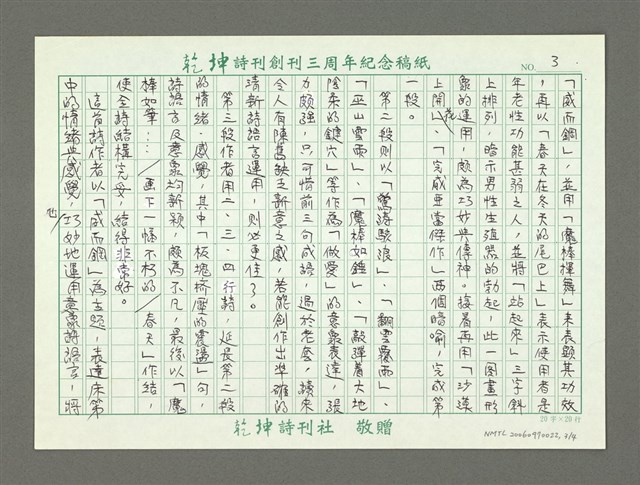 乾坤詩刊創刊三周年紀念稿紙
NO. 3
「威而鋼」，並用「魔棒揮舞」來表顯其功效
，再以「春天在冬天的尾巴上」表示使用者是
年老性功能甚弱之人，並將「站起來」三字斜
上排列，暗示男性生殖器的勃起，此一圖畫形
象的運用，頗為巧妙與傳神。接着再用「沙漠
上開花」、「完成亞當傑作」兩個暗喻，完成第
一段。
第二段則以「驚濤駭浪」、「翻雲覆雨」、
「巫山雲雨」、「魔棒如鐘」、「敲彈着大地
陰柔的鍵穴」等作為「做愛」的意象表達，張
力頗強，只可惜前三句成語，過於老套，讀來
令人有陳舊缺乏新意之感，若能創作出準確的
清新詩語言運用，則必更佳了。
第三段作者用二、三、四行詩，延長第二段
的情緒、感覺，其中「板塊擠壓的震盪」句，
詩語言及意象均新穎，頗為不凡，最後以「魔
棒如筆……／畫下一幅不朽的／春天」作結，
使全詩結構完妥，結得非常好。
這首詩作者以「威而鋼」為主題，表達床第
中的情緒與感覺，也巧妙地運用意象詩語言，將
20字×20行
乾坤詩刊社 敬贈
NMTL20060970022, 3/4